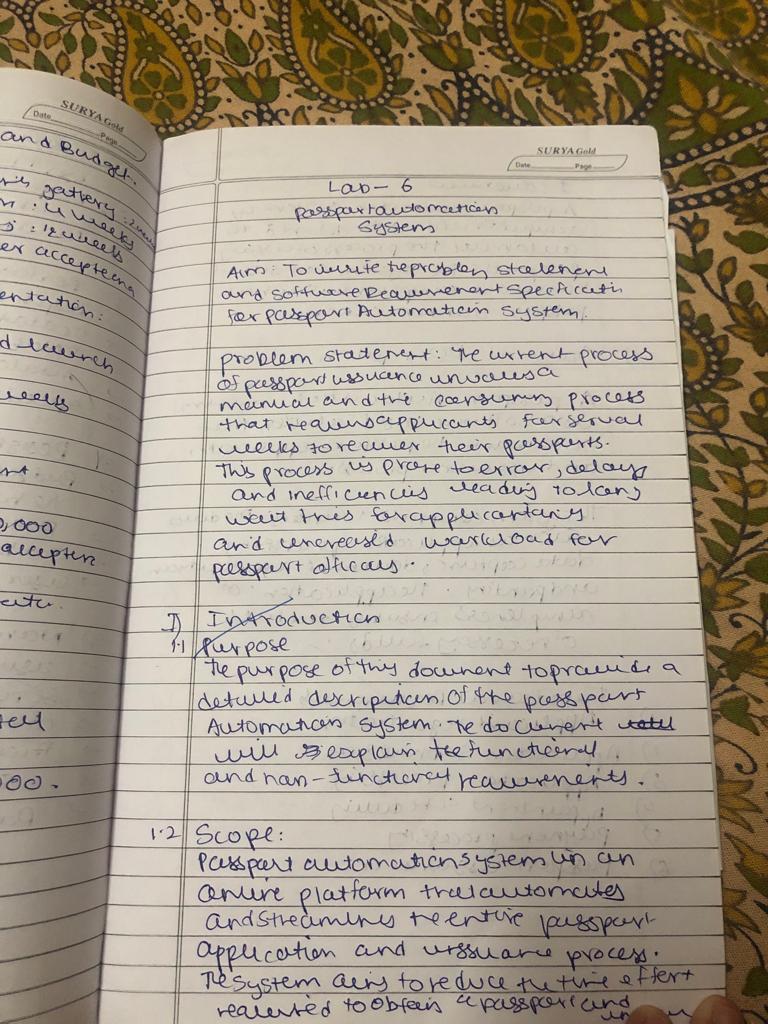 SURYA Gold
Date Page
and Budget.
: 4 weeks
: 12 weeks
er
entation:
d launch
weeks
nt
0,000
000.
SURYA Gold
Date Page
Lab- 6
passport automation
System
Aim: To write the problem statement
and software Requirement Specificatin
for passport Automation System.
problem statement: The current process
of passport issuance involves a
manual and the consuming process
that requires applicants for serval
weeks to reciver their passports.
This process is prone to error, delays
and inefficiencies leading to long
wait this for applicants
and increased workload for
passport officers.
I) Introduction
1.1 Purpose
The purpose of this document to provide a
detailed description of the passport
Automation System. The document
will explain the functional
and non-functional requirements.
1.2 Scope:
Passport automation system is an
online platform that automates
and streamlines the entire passport
application and issuance process.
The system aims to reduce the time effort
required to obtain a passport and